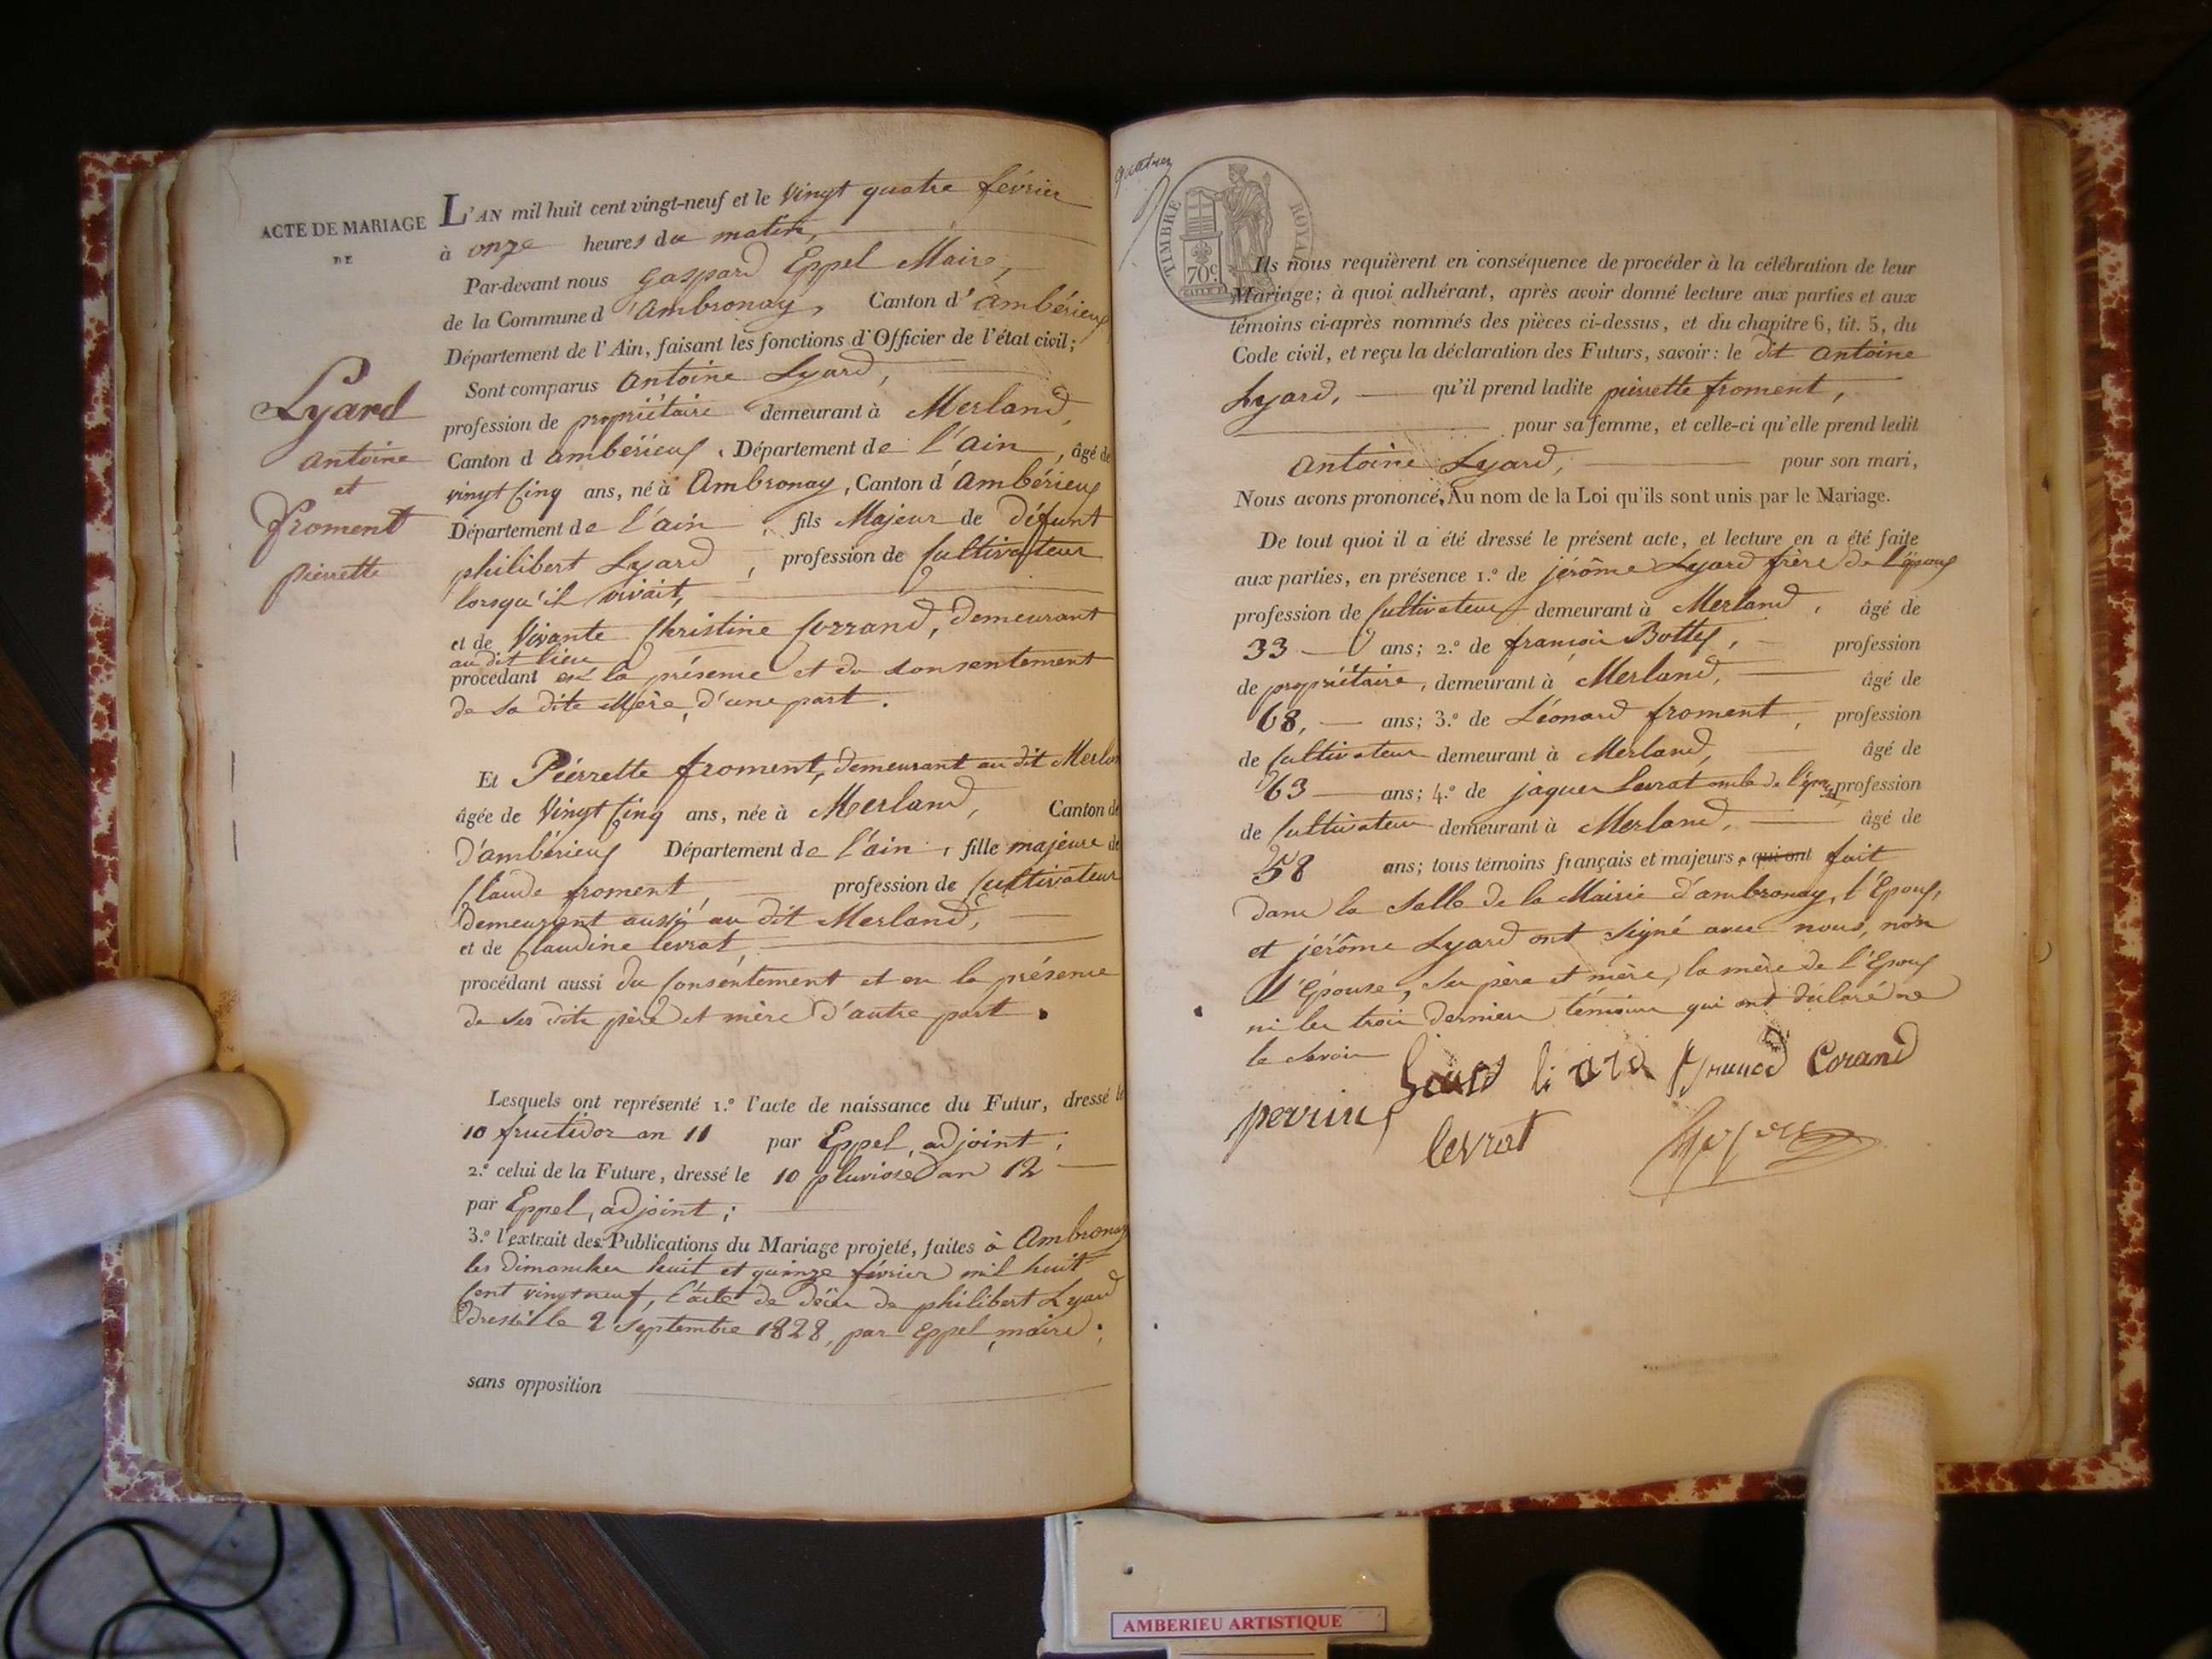 ACTE DE MARIAGE
DE
Lyard
antoine
et
froment
pierrette
L'AN mil huit cent vingt-neuf et le vingt quatre février
à onze heures du matin,
Par-devant nous gaspard Eppel Maire,
de la Commune d'Ambronay, Canton d'ambérieux
Département de l'Ain, faisant les fonctions d'Officier de l'état civil;
Sont comparus Antoine Lyard,
profession de propriétaire demeurant à Merland,
Canton d ambérieux, Département de l'ain, âgé de
vingt cinq ans, né à Ambronay, Canton d'Ambérieux
Département de l'ain, fils Majeur de Défunt
philibert Lyard, profession de Cultivateur
lorsqu'il vivait,
et de Vivante Christine Corrand, demeurant
au dit lieu
procédant en la présence et du consentement
de sa dite Mère, d'une part.
Et Pierrette froment, demeurant au dit Merlan
âgée de Vingt Cinq ans, née à Merland, Canton de
D'ambérieux Département de l'ain, fille majeure de
Claude froment, profession de Cultivateur
Demeurant aussi au dit Merland,
et de Claudine levrat,
procédant aussi du Consentement et en la présence
de ses dits père et mère D'autre part.
Lesquels ont représenté 1.º l'acte de naissance du Futur, dressé le
10 fructidor an 11 par Eppel, adjoint;
2.º celui de la Future, dressé le 10 pluviose an 12
par Eppel, adjoint;
3.º l'extrait des Publications du Mariage projeté, faites à Ambronay
les dimanches huit et quinze février mil huit
Cent vingt neuf, l'acte de décès de philibert Lyard
Dressé le 2 Septembre 1828, par Eppel, maire;
sans opposition
TIMBRE ROYAL
70 c.
Ils nous requièrent en conséquence de procéder à la célébration de leur
Mariage; à quoi adhérant, après avoir donné lecture aux parties et aux
témoins ci-après nommés des pièces ci-dessus, et du chapitre 6, tit. 5, du
Code civil, et reçu la déclaration des Futurs, savoir: le dit antoine
Lyard, qu'il prend ladite pierrette froment,
pour sa femme, et celle-ci qu'elle prend ledit
Antoine Lyard, pour son mari,
Nous avons prononcé, Au nom de la Loi qu'ils sont unis par le Mariage.
De tout quoi il a été dressé le présent acte, et lecture en a été faite
aux parties, en présence 1.º de jérôme Lyard frère de l'époux
profession de Cultivateur demeurant à Merland, âgé de
33 ans; 2.º de françois Bottex, profession
de propriétaire, demeurant à Merland, âgé de
68, ans; 3.º de Léonard froment, profession
de Cultivateur demeurant à Merland, âgé de
63 ans; 4.º de jaques Levrat oncle de l'épouse profession
de Cultivateur demeurant à Merland, âgé de
58 ans; tous témoins français et majeurs, qui ont fait
dans la Salle de la Mairie d'ambronay, l'Epoux,
et jérôme Lyard ont signé avec nous, non
l'Epouse, ses père et mère, la mère de l'Epoux
ni les trois derniers témoins qui ont déclaré ne
le savoir
Corand
perrin
levrat
AMBERIEU ARTISTIQUE